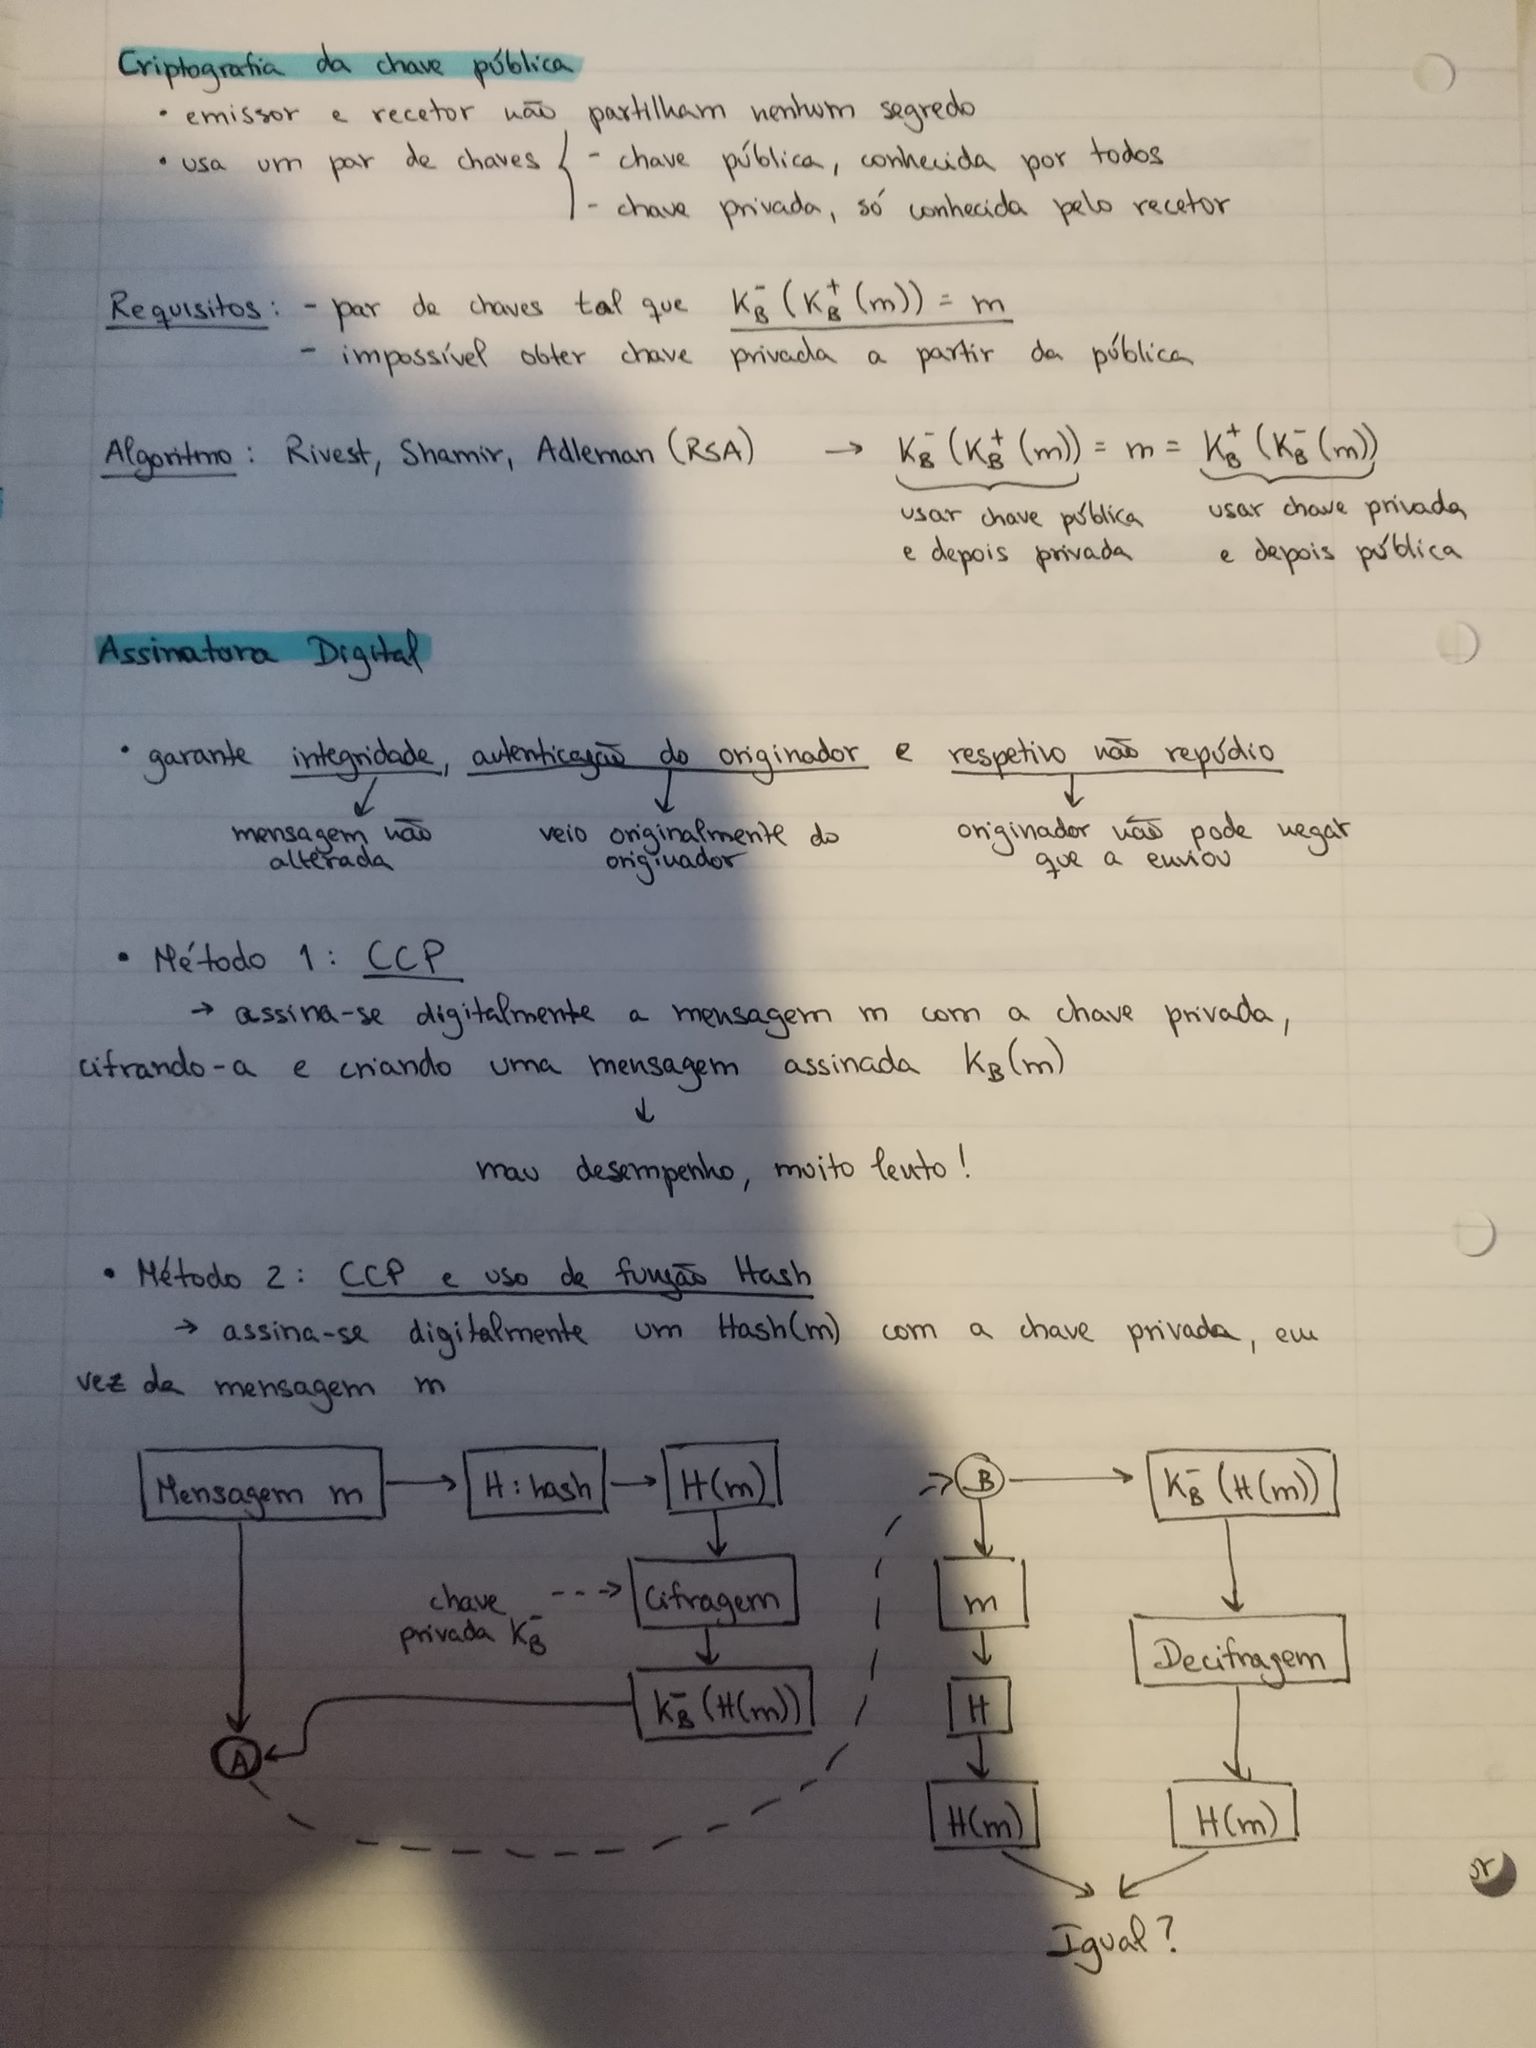 Criptografia da chave pública
• emissor e recetor não partilham nenhum segredo
• usa um par de chaves { - chave pública, conhecida por todos
- chave privada, só conhecida pelo recetor
Requisitos: - par de chaves tal que K_B^-(K_B^+(m)) = m
- impossível obter chave privada a partir da pública
Algoritmo: Rivest, Shamir, Adleman (RSA) → K_B^-(K_B^+(m)) = m = K_B^+(K_B^-(m))
usar chave pública usar chave privada
e depois privada e depois pública
Assinatura Digital
• garante integridade, autenticação do originador e respetivo não repúdio
mensagem não veio originalmente do originador não pode negar
alterada originador que a enviou
• Método 1: CCP
→ assina-se digitalmente a mensagem m com a chave privada,
cifrando-a e criando uma mensagem assinada K_B(m)
↓
mau desempenho, muito lento!
• Método 2: CCP e uso de função Hash
→ assina-se digitalmente um Hash(m) com a chave privada, em
vez da mensagem m
Mensagem m → H: hash → H(m)
chave
privada K_B^-
Cifragem
K_B^-(H(m))
A
B → K_B^-(H(m))
m
H
H(m)
Decifragem
H(m)
Igual?
or